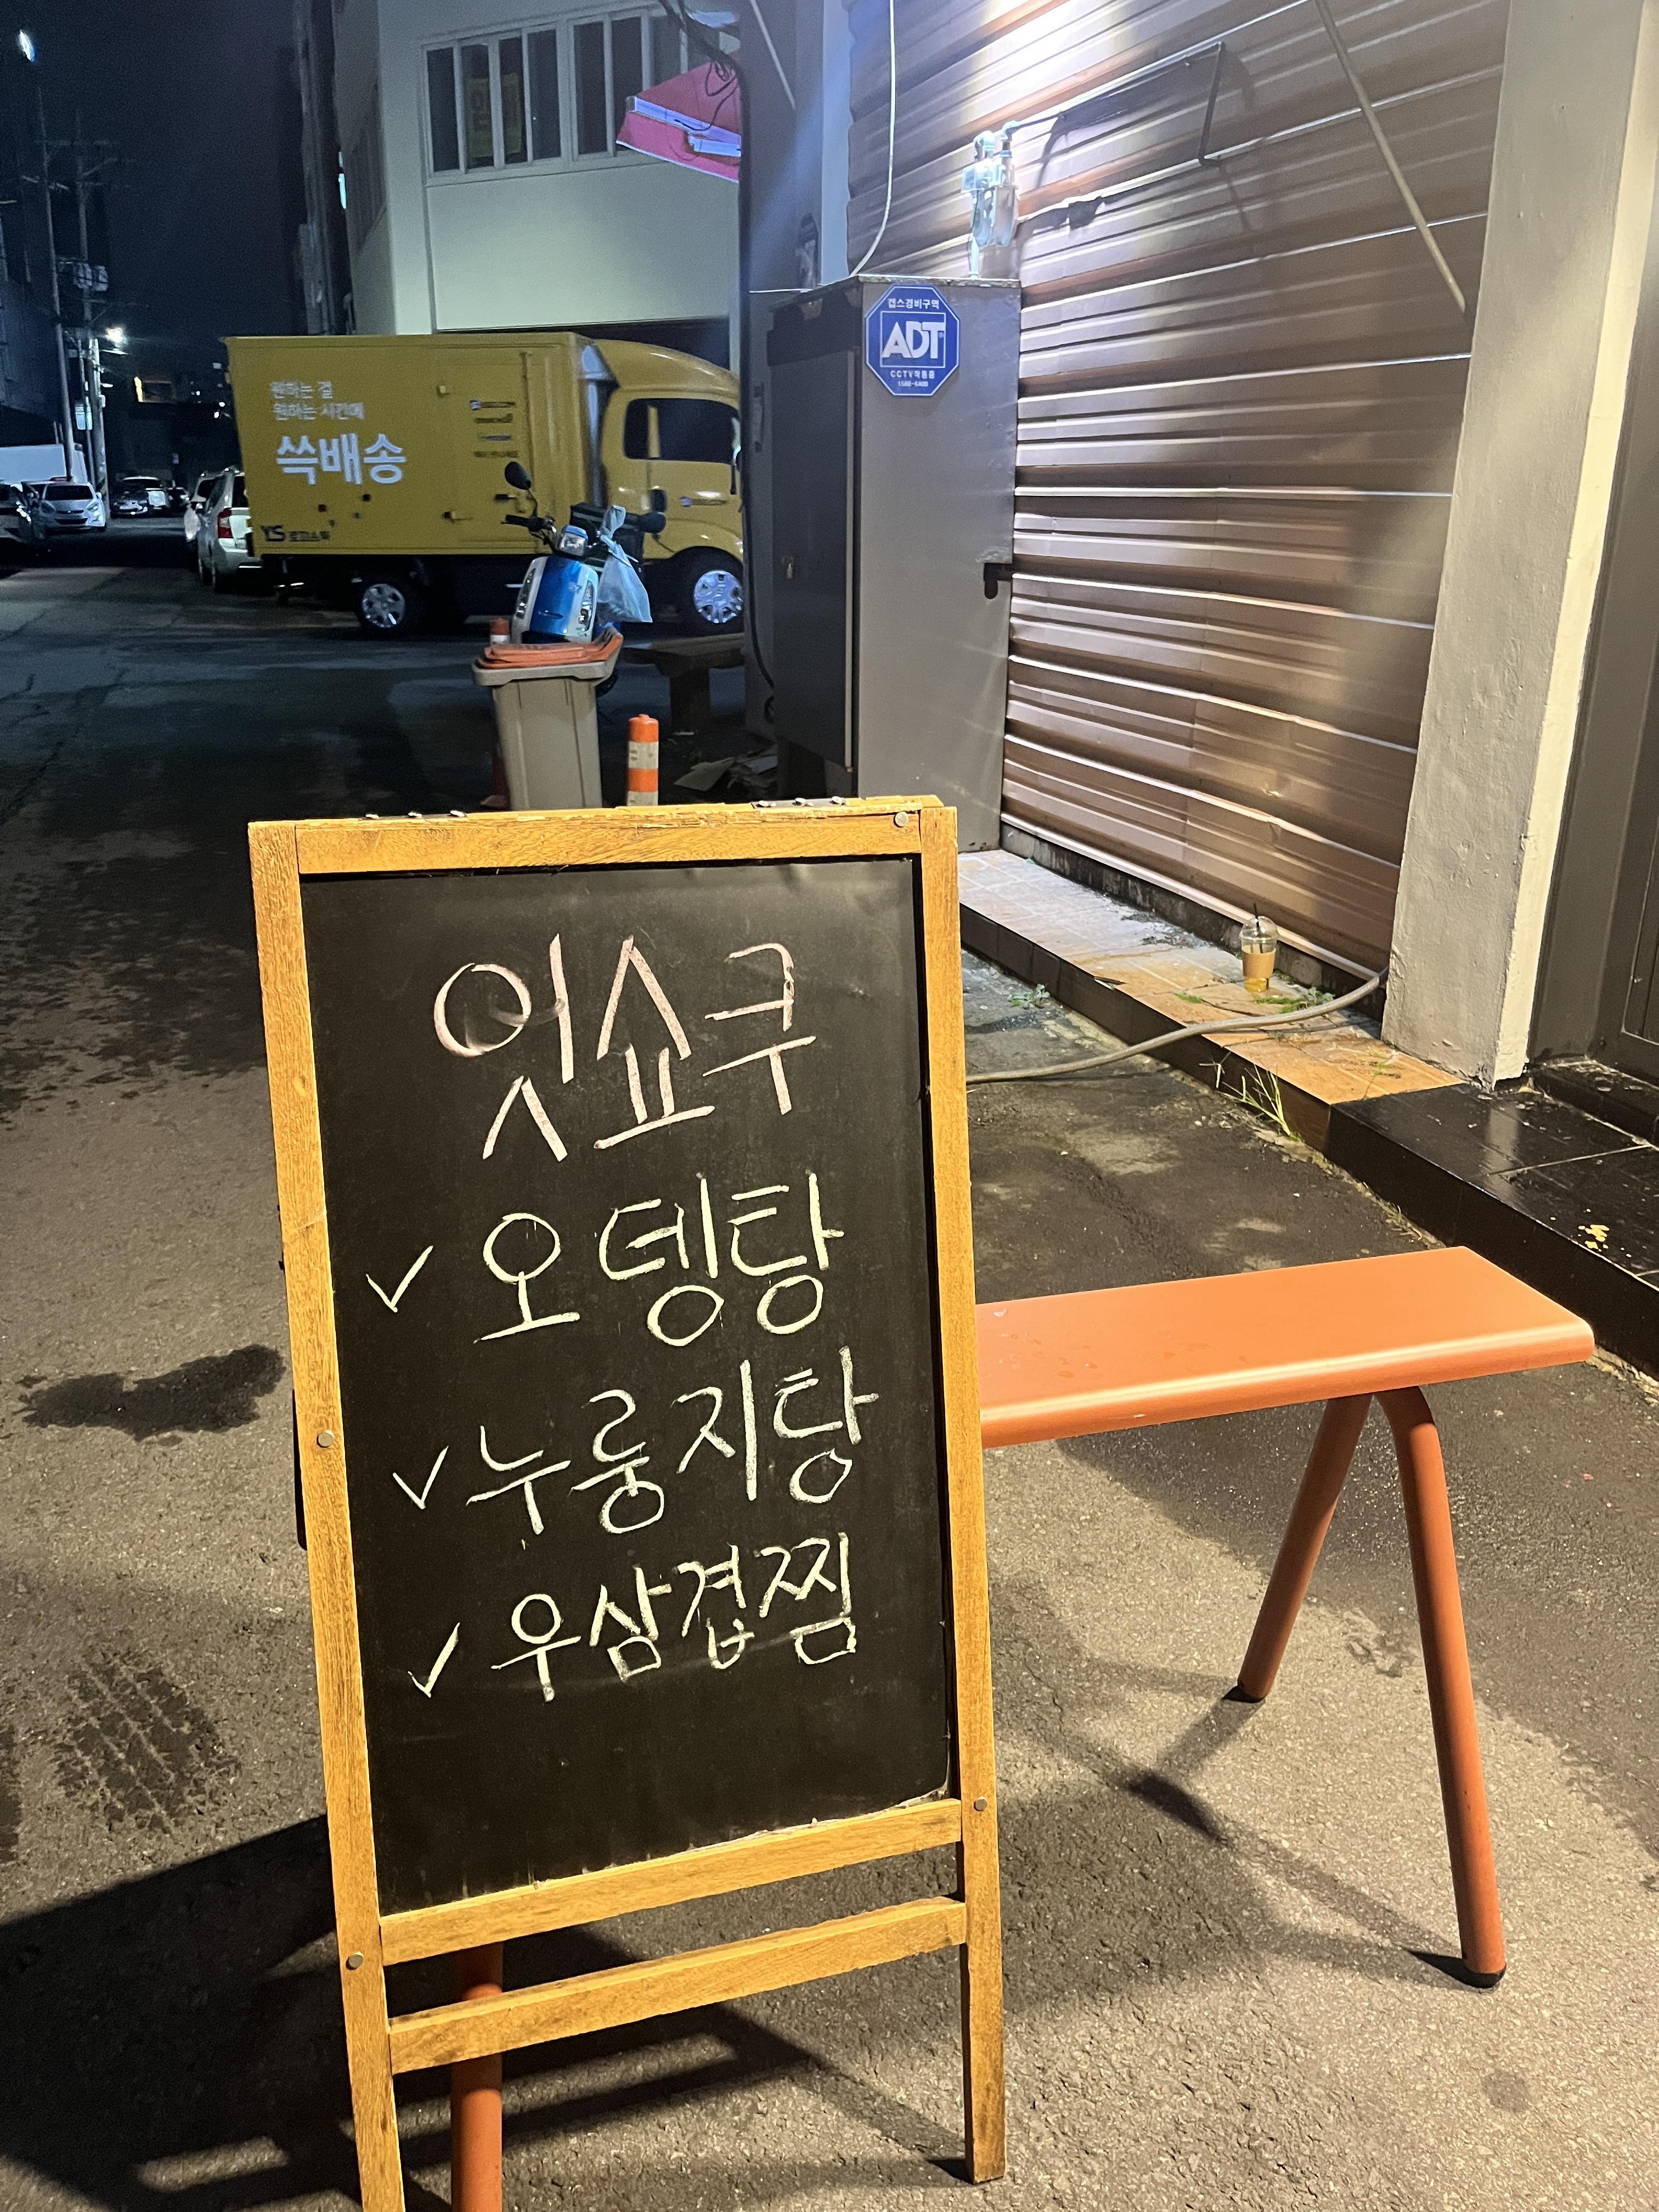 캡스경비구역
ADT
CCTV작동중
1588-6400
원하는 걸
원하는 시간에
쓱배송
YS
잇쇼쿠
✓ 오뎅탕
✓ 누룽지탕
✓ 우삼겹찜